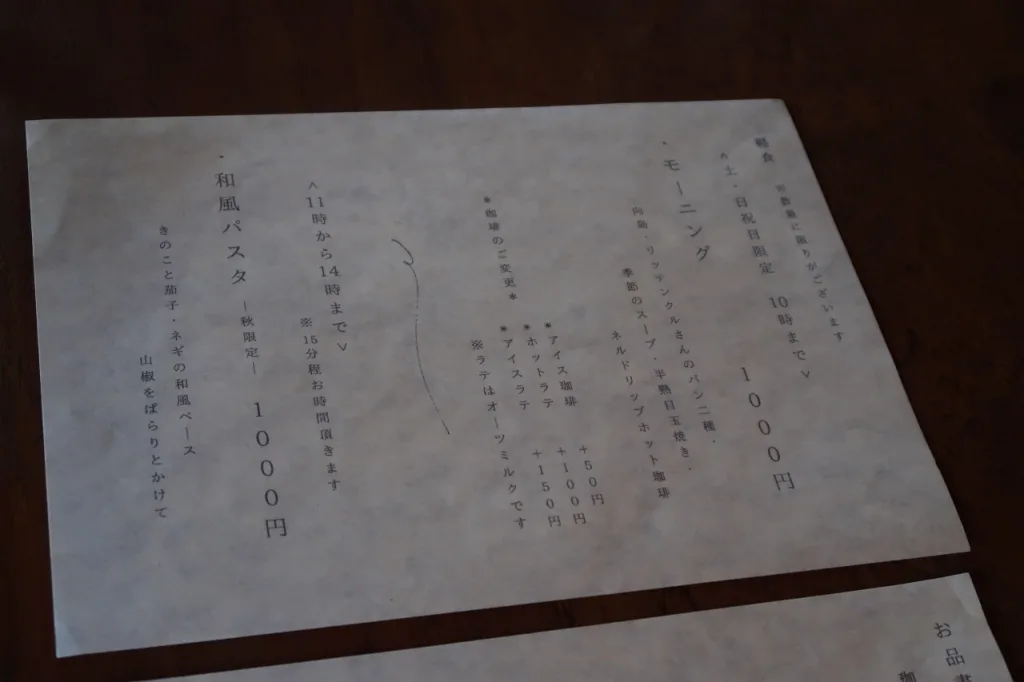 軽食 ※数量に限りがございます
<土・日祝日限定 10時まで>
・モーニング 1000円
向島・リッテンクルさんのパン二種・
季節のスープ・半熟目玉焼き・
ネルドリップホット珈琲
*珈琲のご変更*
*アイス珈琲 +50円
*ホットラテ +100円
*アイスラテ +150円
※ラテはオーツミルクです
<11時から14時まで>
※15分程お時間頂きます
・和風パスタ ―秋限定― 1000円
きのこと茄子・ネギの和風ベース
山椒をぱらりとかけて
お品書
珈